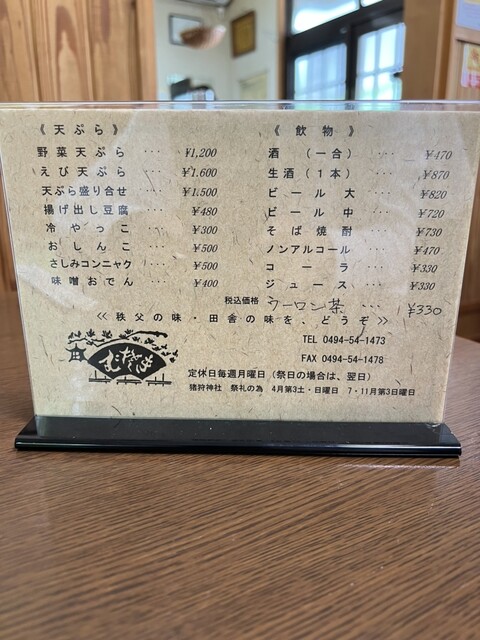 《 天ぷら 》
野菜天ぷら ··· ¥1,200
えび天ぷら ··· ¥1,600
天ぷら盛り合せ ¥1,500
揚げ出し豆腐 ¥480
冷やっこ ··· ¥300
おしんこ ··· ¥500
さしみコンニャク ¥500
味噌おでん ··· ¥400
《 飲物 》
酒 (一合) ··· ¥470
生酒 (1本) ··· ¥870
ビール 大 ··· ¥820
ビール 中 ··· ¥720
そば焼酎 ··· ¥730
ノンアルコール ··· ¥470
コーラ ··· ¥330
ジュース ··· ¥330
税込価格 ウーロン茶 ··· ¥330
≪ 秩父の味・田舎の味を、どうぞ ≫
TEL 0494-54-1473
FAX 0494-54-1478
定休日毎週月曜日(祭日の場合は、翌日)
猪狩神社 祭礼の為 4月第3土・日曜日 7・11月第3日曜日